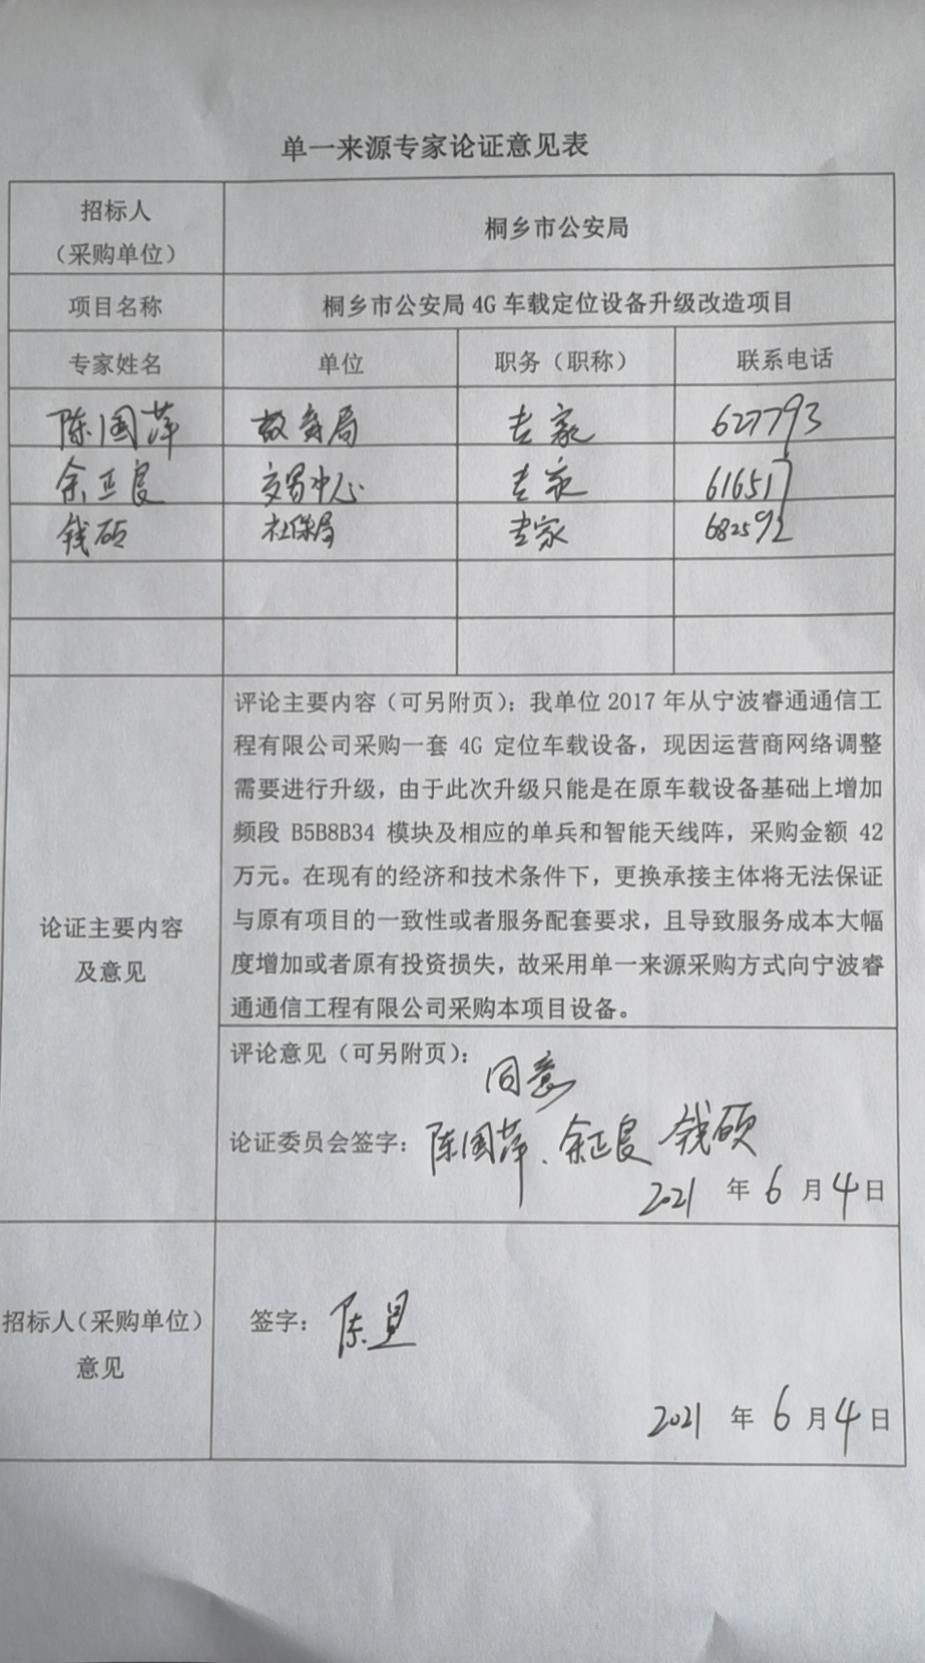 单一来源专家论证意见表
招标人
（采购单位）
桐乡市公安局
项目名称
桐乡市公安局 4G 车载定位设备升级改造项目
专家姓名 单位 职务（职称） 联系电话
陈国萍 教育局 专家 627793
余正良 交易中心 专家 616517
钱硕 社保局 专家 682592
论证主要内容
及意见
评论主要内容（可另附页）：我单位 2017 年从宁波睿通通信工
程有限公司采购一套 4G 定位车载设备，现因运营商网络调整
需要进行升级，由于此次升级只能是在原车载设备基础上增加
频段 B5B8B34 模块及相应的单兵和智能天线阵，采购金额 42
万元。在现有的经济和技术条件下，更换承接主体将无法保证
与原有项目的一致性或者服务配套要求，且导致服务成本大幅
度增加或者原有投资损失，故采用单一来源采购方式向宁波睿
通通信工程有限公司采购本项目设备。
评论意见（可另附页）：
同意
论证委员会签字：陈国萍、余正良 钱硕
2021 年 6 月 4 日
招标人（采购单位）
意见
签字：陈
2021 年 6 月 4 日